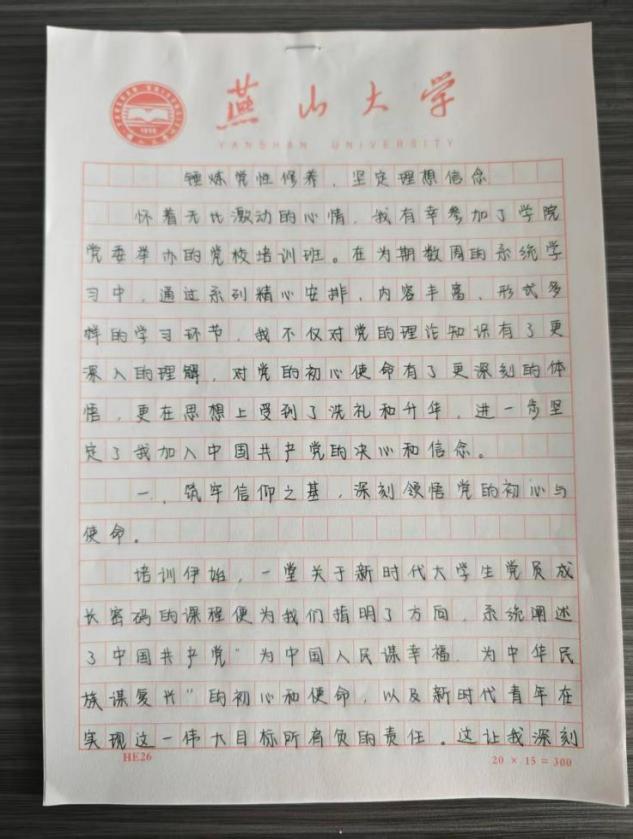 燕山大学
YANSHAN UNIVERSITY
锤炼党性修养，坚定理想信念
怀着无比激动的心情，我有幸参加了学院
党委举办的党校培训班。在为期数周的系统学
习中，通过系列精心安排、内容丰富、形式多
样的学习环节，我不仅对党的理论知识有了更
深入的理解，对党的初心使命有了更深刻的体
悟，更在思想上受到了洗礼和升华，进一步坚
定了我加入中国共产党的决心和信念。
一、筑牢信仰之基，深刻领悟党的初心与
使命。
培训伊始，一堂关于新时代大学生党员成
长密码的课程便为我们指明了方向，系统阐述
了中国共产党“为中国人民谋幸福，为中华民
族谋复兴”的初心和使命，以及新时代青年在
实现这一伟大目标所肩负的责任。这让我深刻
HE26
20 × 15 = 300